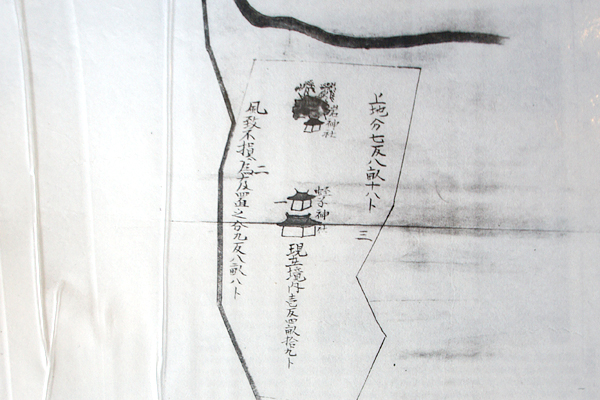 上地分七反八畝十八ト
三
岩神社
蛭子神社
現在境内壱反四畝拾九ト
二
風致不損 置之分九反八畝八ト